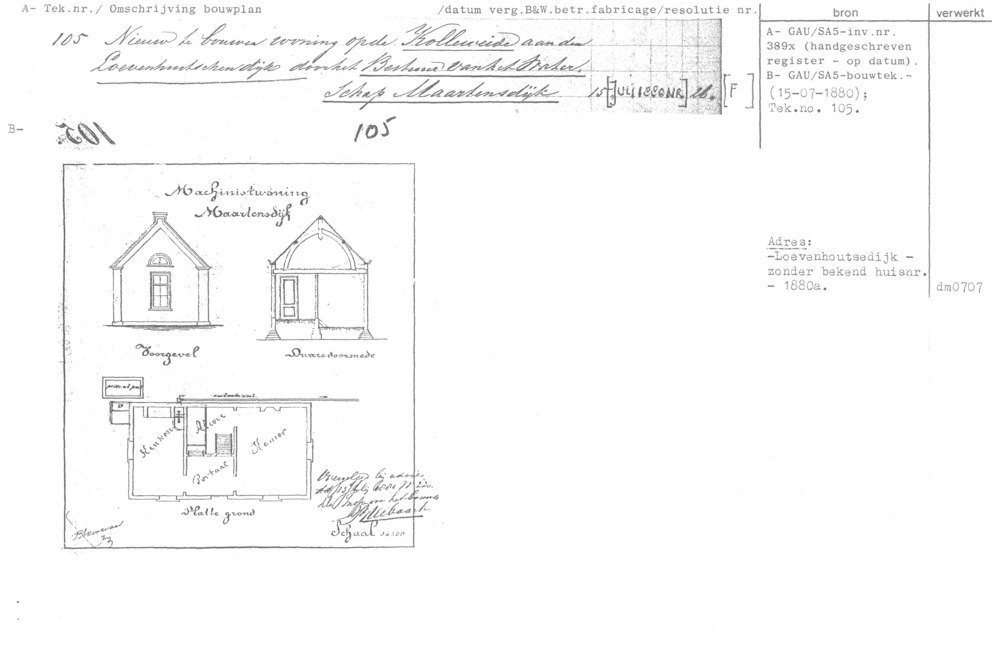 A- Tek.nr./ Omschrijving bouwplan /datum verg.B&W.betr.fabricage/resolutie nr. bron verwerkt
105 Nieuw te bouwen woning op de Kolleweide aan den
Loevenhoutschendijk door het Bestuur van het Water.
Schap Maartensdijk. 15 [JULIJ 1880 NR.] 26. [F]
A- GAU/SA5-inv.nr.
389x (handgeschreven
register - op datum).
B- GAU/SA5-bouwtek.-
(15-07-1880);
Tek.no. 105.
B- 105 105
Machinistwoning
Maartensdijk
Voorgevel Dwarsdoorsnede
Adres:
-Loevenhoutsedijk -
zonder bekend huisnr.
- 1880a. dm0707
Keuken
Alcove
Kamer
Portaal
Platte grond
Schaal